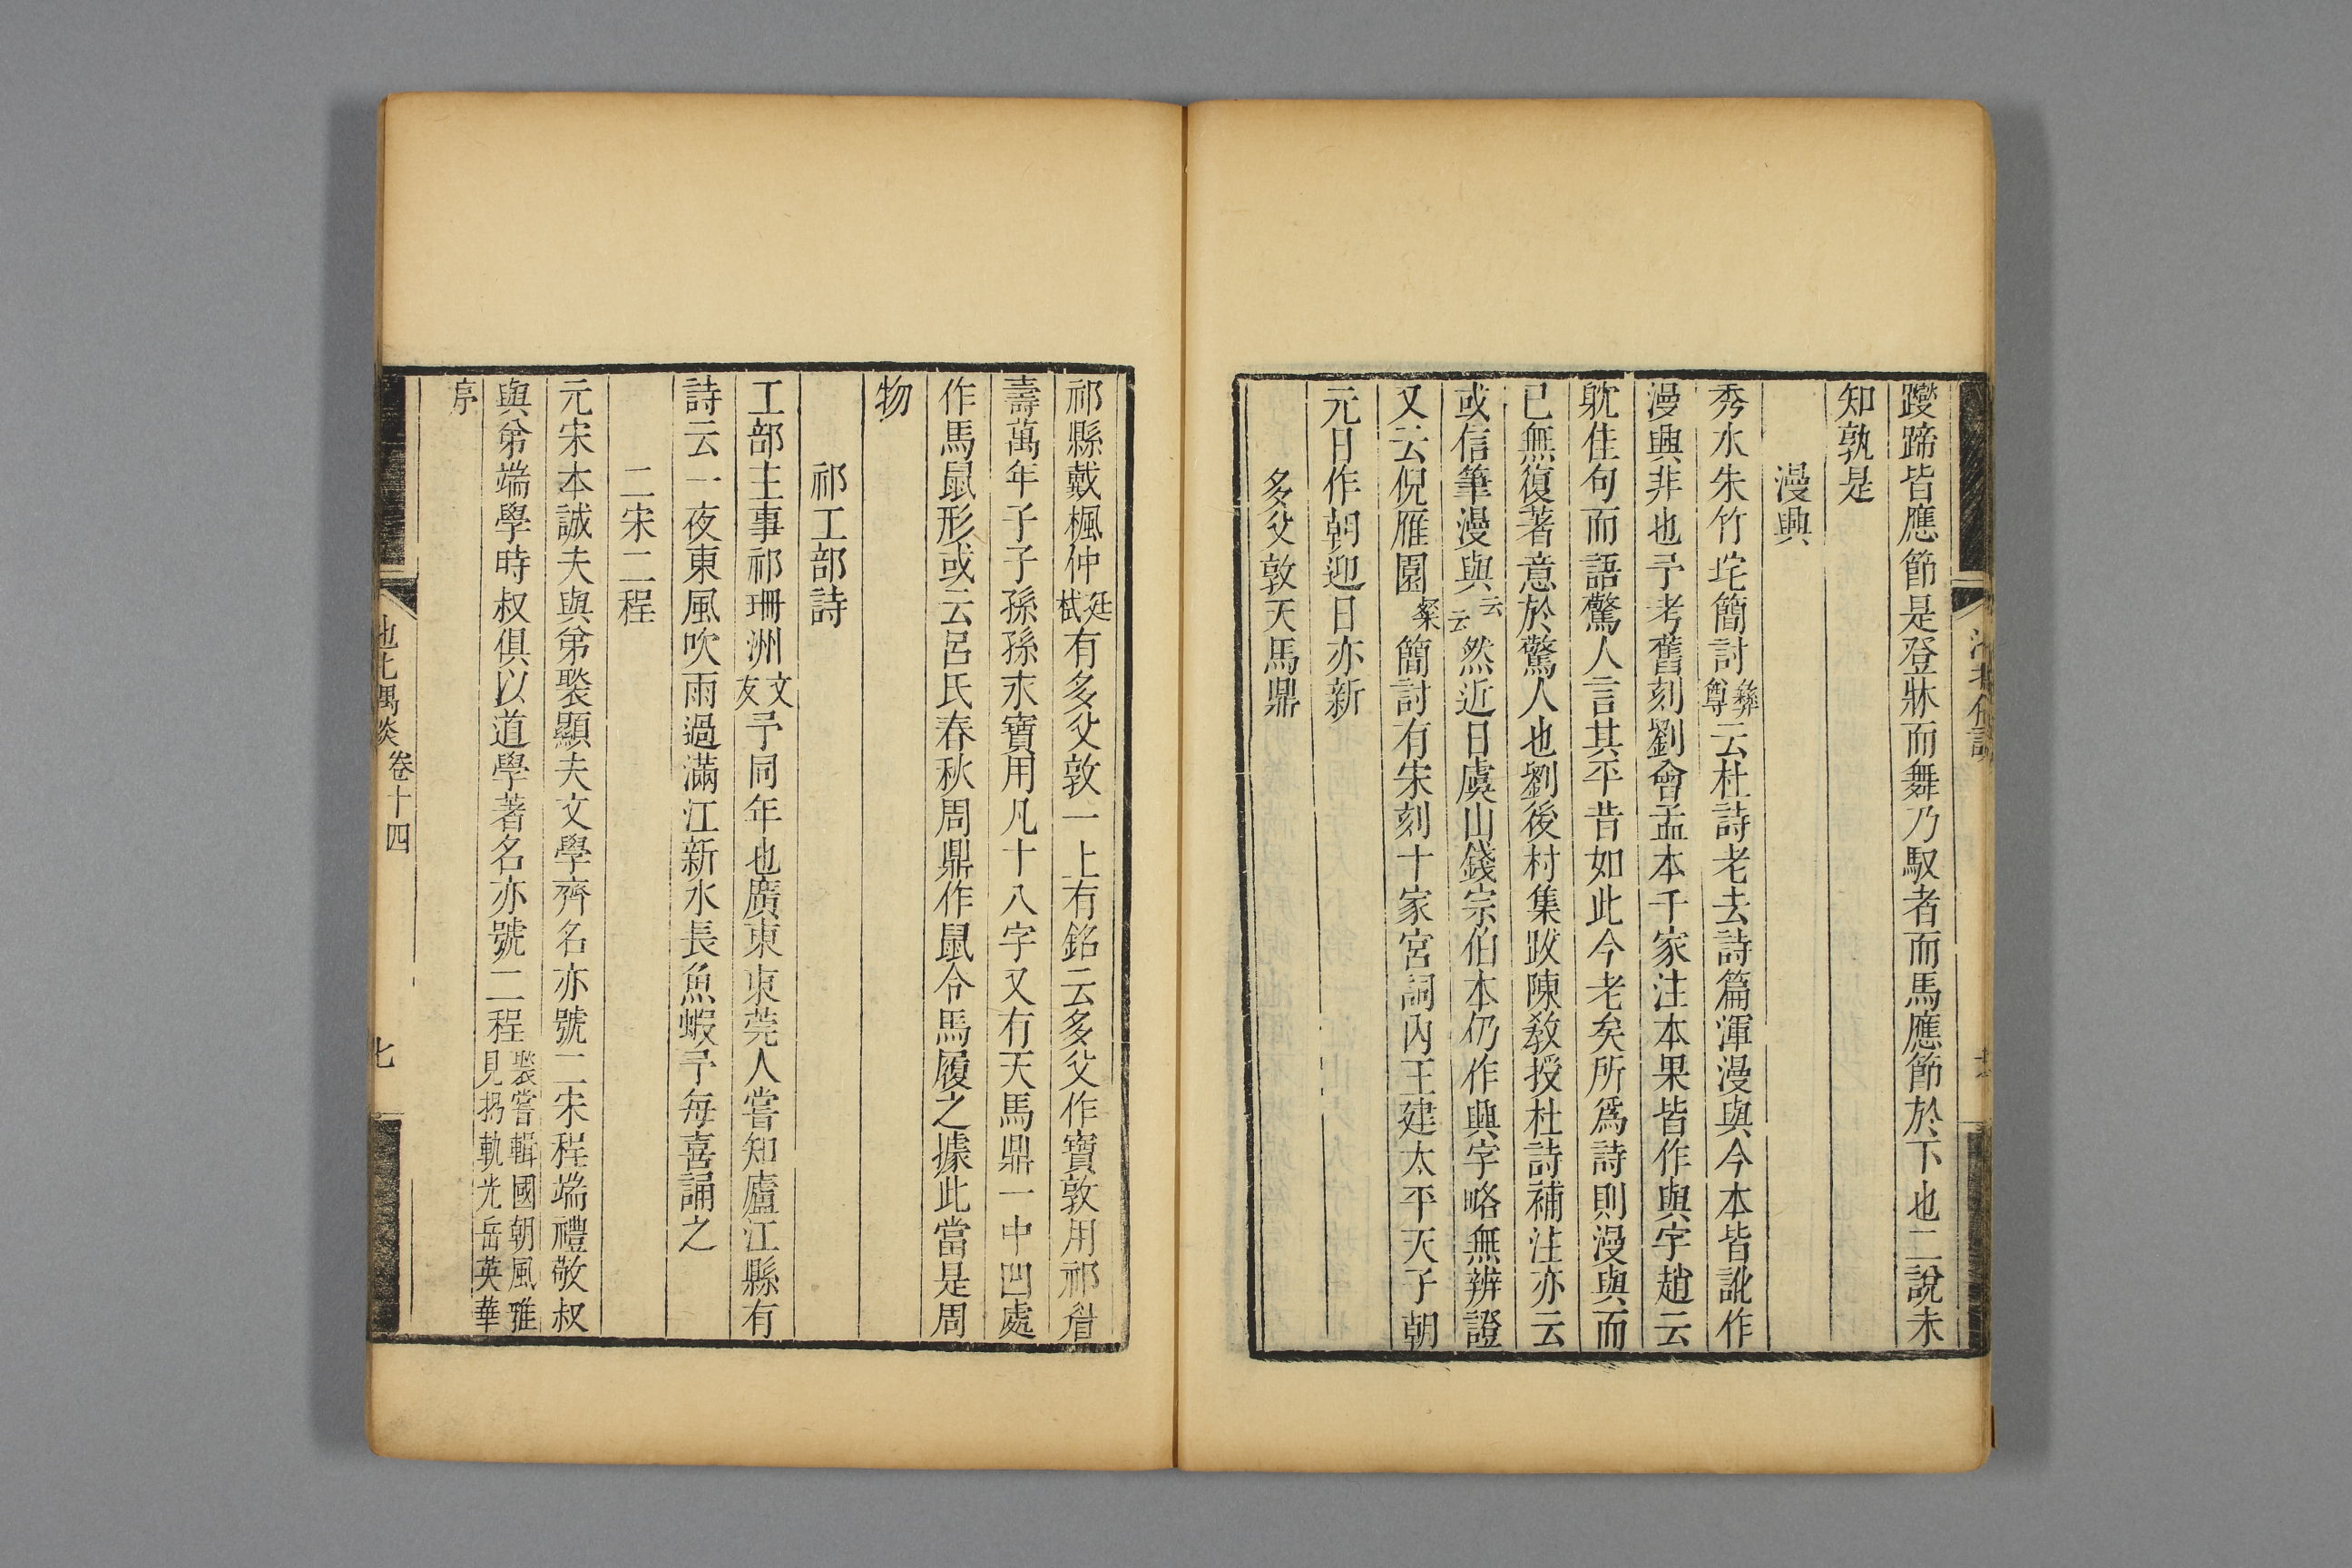 躞蹄皆應節是登牀而舞乃馭者而馬應節於下也二說未
知孰是
漫興
秀水朱竹垞簡討彝尊云杜詩老去詩篇渾漫與今本皆訛作
漫興非也予考舊刻劉會孟本千家注本果皆作與字趙云
躭佳句而語驚人言其平昔如此今老矣所爲詩則漫與而
已無復著意於驚人也劉後村集跋陳教授杜詩補注亦云
或信筆漫與云云然近日虞山錢宗伯本仍作興字略無辨證
又云倪雁園粲簡討有宋刻十家宮詞內王建太平天子朝
元日作朝迎日亦新
多父敦天馬鼎
祁縣戴楓仲廷栻有多父敦一上有銘云多父作寶敦用祁眉
壽萬年子子孫孫永寶用凡十八字又有天馬鼎一中凹處
作馬鼠形或云呂氏春秋周鼎作鼠令馬履之據此當是周
物
祁工部詩
工部主事祁珊洲文友予同年也廣東東莞人嘗知廬江縣有
詩云一夜東風吹雨過滿江新水長魚蝦予每喜誦之
二宋二程
元宋本誠夫與弟褧顯夫文學齊名亦號二宋程端禮敬叔
與弟端學時叔俱以道學著名亦號二程褧嘗輯國朝風雅見揭軌光岳英華
序
池北偶談 卷十四 七